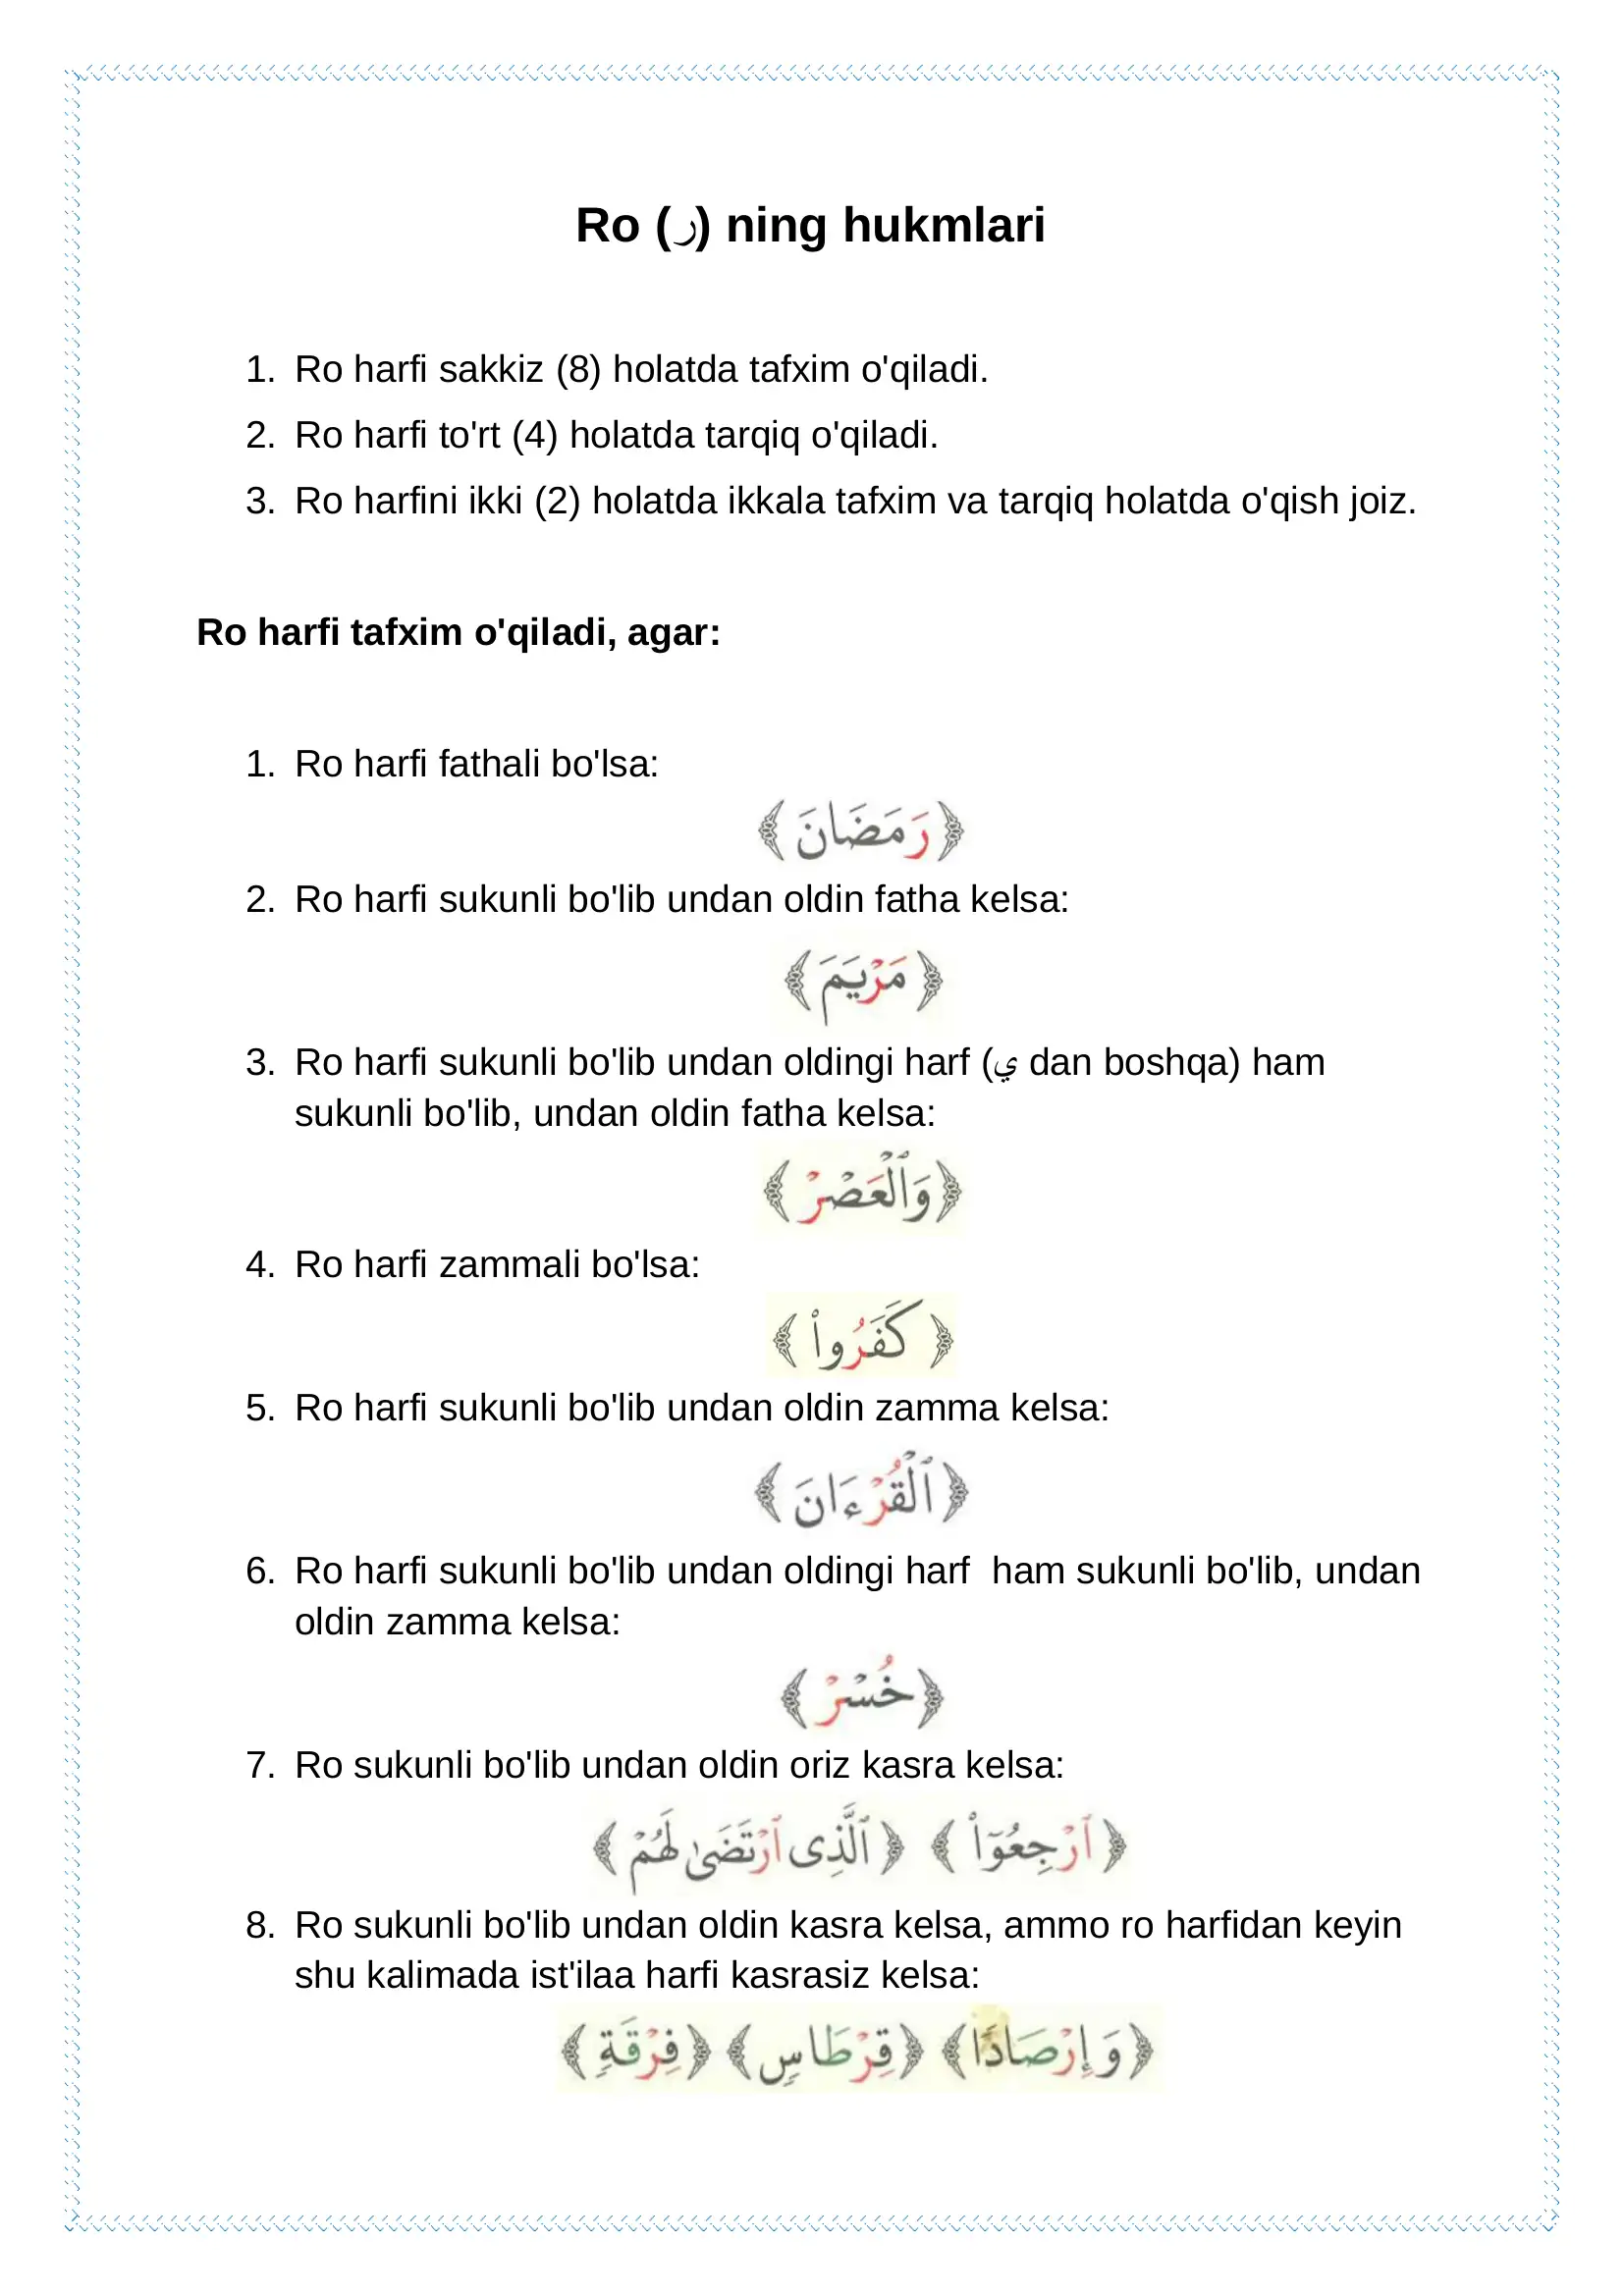 Ro (ر) ning hukmlari
1. Ro harfi sakkiz (8) holatda tafxim o'qiladi.
2. Ro harfi to'rt (4) holatda tarqiq o'qiladi.
3. Ro harfini ikki (2) holatda ikkala tafxim va tarqiq holatda o'qish joiz.
Ro harfi tafxim o'qiladi, agar:
1. Ro harfi fathali bo'lsa:
﴿رَمَضَانَ ﴾
2. Ro harfi sukunli bo'lib undan oldin fatha kelsa:
﴿ مَرۡيَمَ ﴾
3. Ro harfi sukunli bo'lib undan oldingi harf (ي dan boshqa) ham
sukunli bo'lib, undan oldin fatha kelsa:
﴿وَٱلۡعَصۡرۡ ﴾
4. Ro harfi zammali bo'lsa:
﴿ كَفَرُواْ ﴾
5. Ro harfi sukunli bo'lib undan oldin zamma kelsa:
﴿ ٱلۡقُرۡءَانَ ﴾
6. Ro harfi sukunli bo'lib undan oldingi harf  ham sukunli bo'lib, undan
oldin zamma kelsa:
﴿خُسۡرۡ ﴾
7. Ro sukunli bo'lib undan oldin oriz kasra kelsa:
﴿ ٱرۡجِعُوٓاْ ﴾ ﴿ ٱلَّذِى ٱرۡتَضَىٰ لَهُمۡ ﴾
8. Ro sukunli bo'lib undan oldin kasra kelsa, ammo ro harfidan keyin
shu kalimada ist'ilaa harfi kasrasiz kelsa:
﴿ وَإِرۡصَادًا﴾ ﴿قِرۡطَاسٍ﴾ ﴿فِرۡقَةٍ﴾